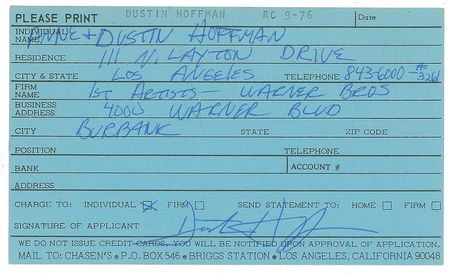 DUSTIN HOFFMAN RC 9-76
PLEASE PRINT Date
INDIVIDUAL NAME ANNE + DUSTIN HOFFMAN
RESIDENCE 111 N. LAYTON DRIVE
CITY & STATE LOS ANGELES TELEPHONE 843-6000-#3261
FIRM NAME 1ST ARTISTS - WARNER BROS
BUSINESS ADDRESS 4000 WARNER BLVD
CITY BURBANK STATE ZIP CODE
POSITION TELEPHONE
BANK ACCOUNT #
ADDRESS
CHARGE TO: INDIVIDUAL FIRM SEND STATEMENT TO: HOME FIRM
SIGNATURE OF APPLICANT
WE DO NOT ISSUE CREDIT CARDS. YOU WILL BE NOTIFIED UPON APPROVAL OF APPLICATION.
MAIL TO: CHASEN'S • P.O. BOX 546 • BRIGGS STATION • LOS ANGELES, CALIFORNIA 90048